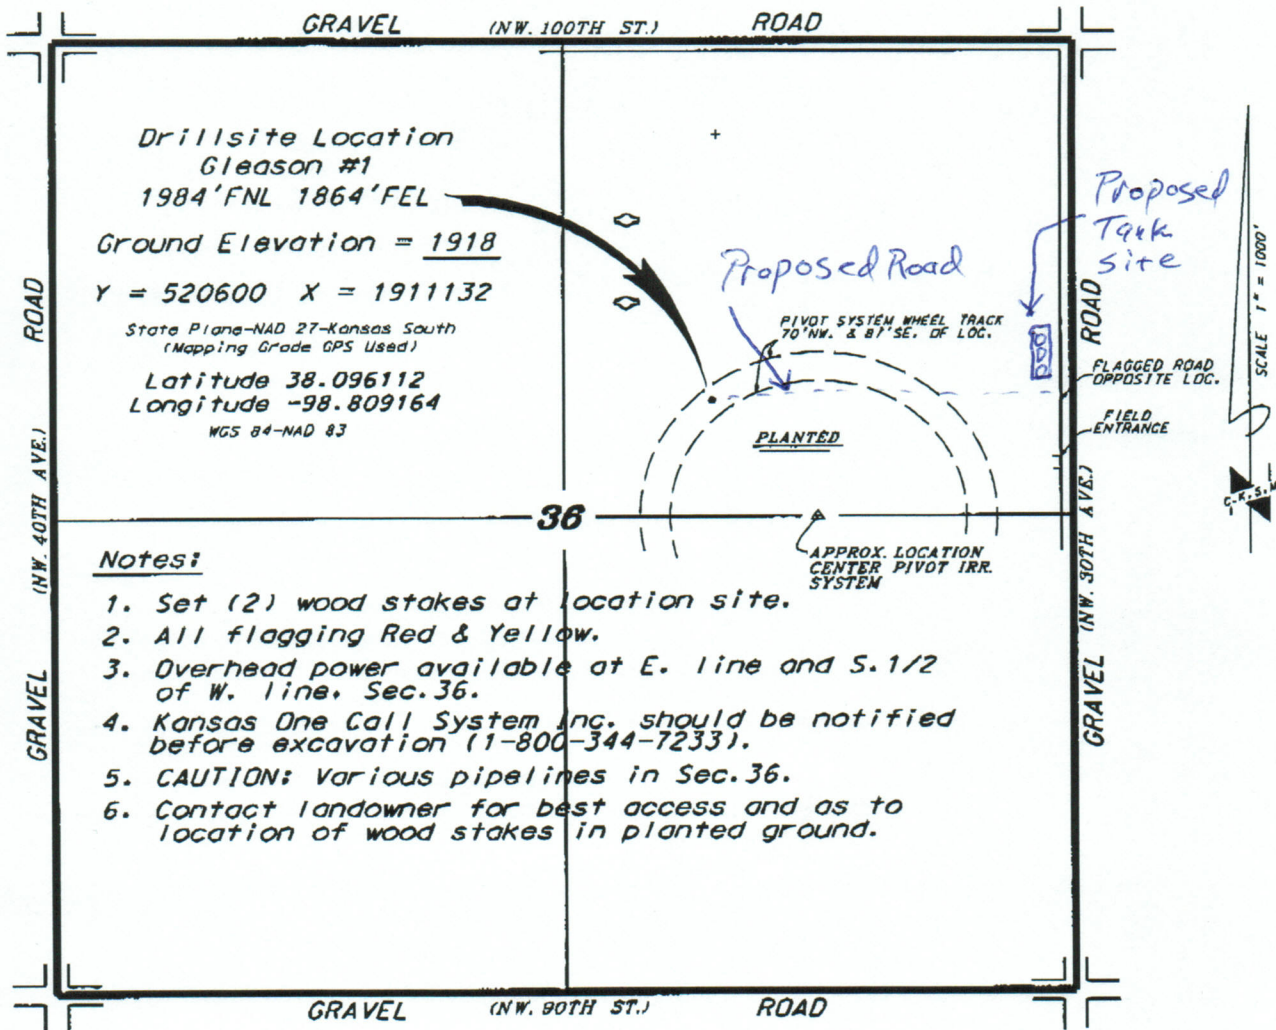 GRAVEL (NW. 100TH ST.) ROAD
Drillsite Location
Gleason #1
1984'FNL 1864'FEL
Ground Elevation = 1918
Y = 520600 X = 1911132
State Plane-NAD 27-Kansas South
(Mapping Grade GPS Used)
Latitude 38.096112
Longitude -98.809164
WGS 84-NAD 83
Proposed
Tank
site
Proposed Road
PIVOT SYSTEM WHEEL TRACK
70'NW. & 87'SE. OF LOC.
FLAGGED ROAD
OPPOSITE LOC.
FIELD
ENTRANCE
PLANTED
36
APPROX. LOCATION
CENTER PIVOT IRR.
SYSTEM
GRAVEL (NW. 40TH AVE.) ROAD
GRAVEL (NW. 30TH AVE.) ROAD
SCALE 1" = 1000'
C.K.S.M
Notes:
1. Set (2) wood stakes at location site.
2. All flagging Red & Yellow.
3. Overhead power available at E. line and S. 1/2
of W. line, Sec. 36.
4. Kansas One Call System Inc. should be notified
before excavation (1-800-344-7233).
5. CAUTION: Various pipelines in Sec. 36.
6. Contact landowner for best access and as to
location of wood stakes in planted ground.
GRAVEL (NW. 90TH ST.) ROAD